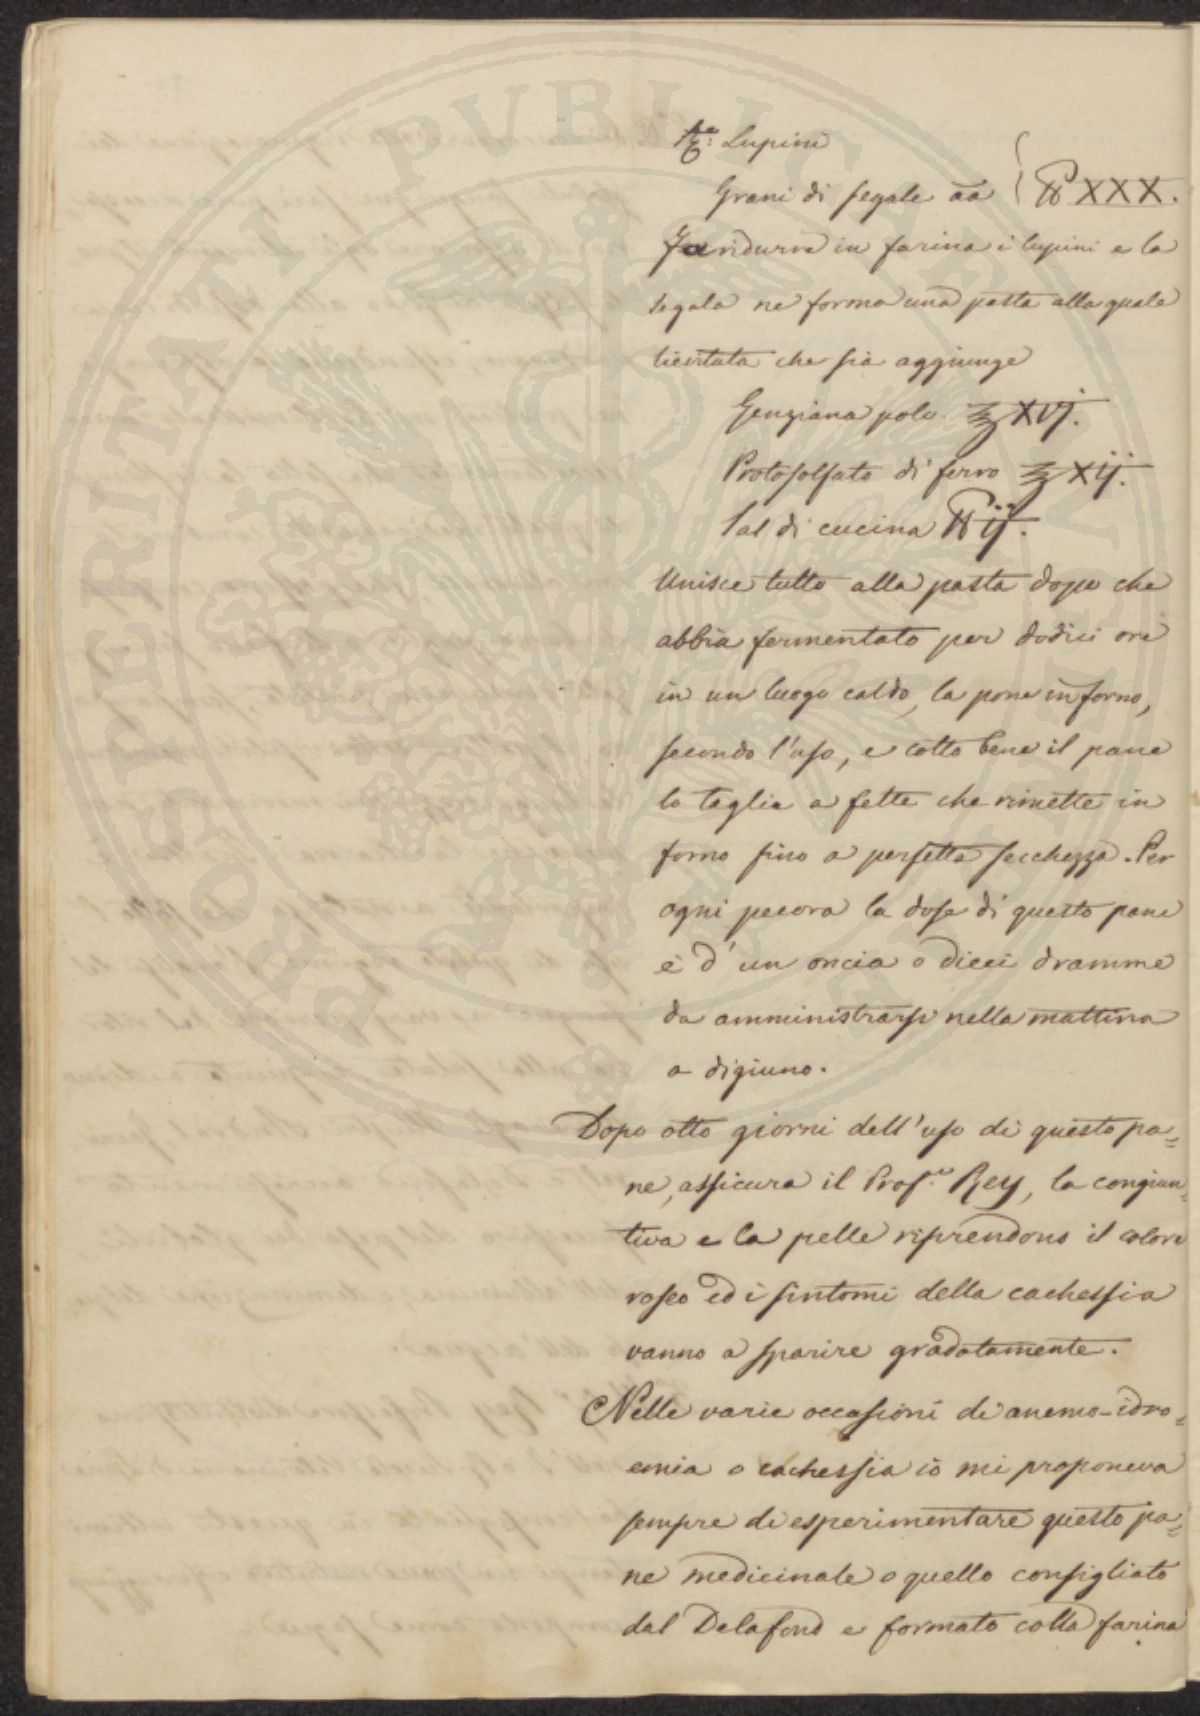 PROSPERITATI PUBLICAE
Re. Lupini
Grani di segale aā ℔ XXX.
Fa ridurre in farina i lupini e la
segala ne forma una pasta alla quale
lievitata che sia aggiunge
Genziana polv. ℥ xvj.
Protosolfato di ferro ℥ xij.
Sal di cucina ℔ ij.
Unisce tutto alla pasta dopo che
abbia fermentato per dodici ore
in un luogo caldo, la pone in forno,
secondo l'uso, e cotto bene il pane
lo taglia a fette che rimette in
forno fino a perfetta secchezza. Per
ogni pecora la dose di questo pane
è d'un oncia o dieci dramme
da amministrarsi nella mattina
a digiuno.
Dopo otto giorni dell'uso di questo pa=
ne, assicura il Prof.re Rey, la congiun=
tiva e la pelle riprendono il colore
roseo ed i sintomi della cachessia
vanno a sparire gradatamente.
Nelle varie occasioni di anemo-idro=
emia o cachessia io mi proponeva
sempre di esperimentare questo pa=
ne medicinale o quello consigliato
dal Delafond e formato colla farina